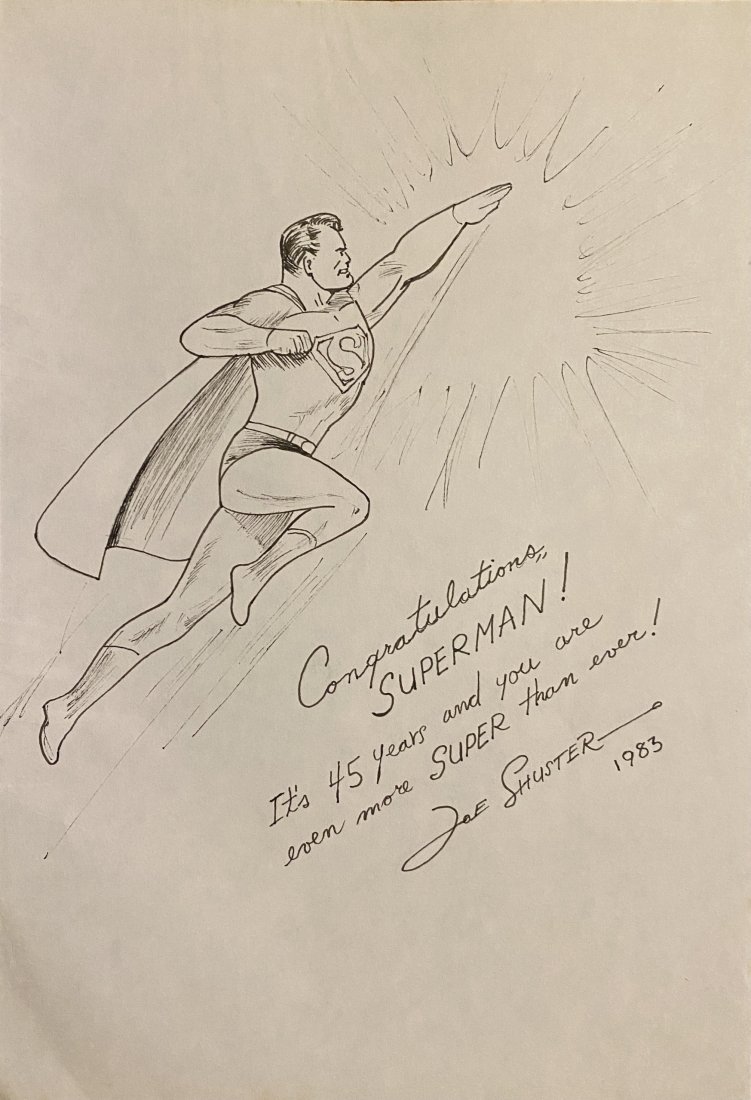 S
Congratulations,
SUPERMAN!
It's 45 years and you are
even more SUPER than ever!
JOE SHUSTER
1983